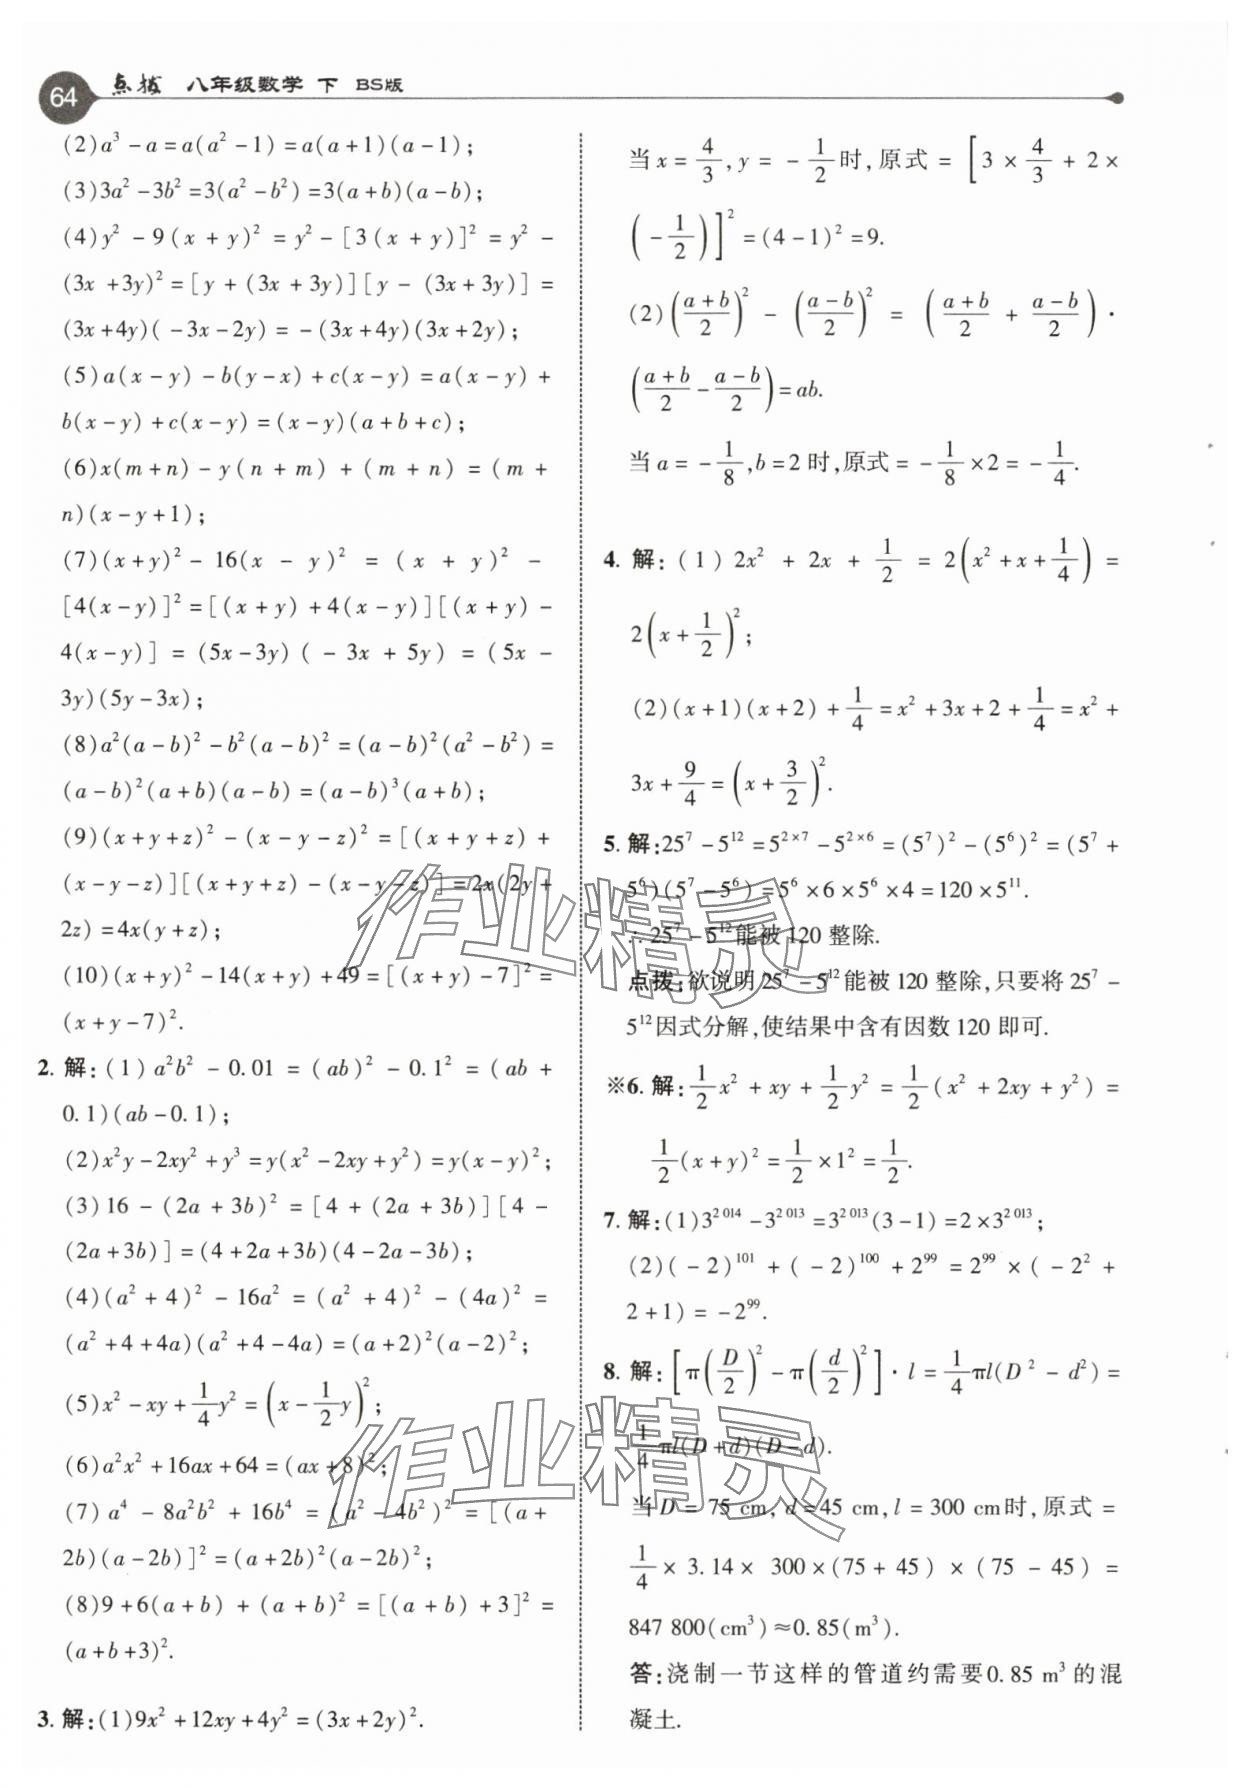 64 点拨 八年级数学 下 BS版
(2)a³-a=a(a²-1)=a(a+1)(a-1);
(3)3a²-3b²=3(a²-b²)=3(a+b)(a-b);
(4)y²-9(x+y)²=y²-[3(x+y)]²=y²-
(3x+3y)²=[y+(3x+3y)][y-(3x+3y)]=
(3x+4y)(-3x-2y)=-(3x+4y)(3x+2y);
(5)a(x-y)-b(y-x)+c(x-y)=a(x-y)+
b(x-y)+c(x-y)=(x-y)(a+b+c);
(6)x(m+n)-y(n+m)+(m+n)=(m+
n)(x-y+1);
(7)(x+y)²-16(x-y)²=(x+y)²-
[4(x-y)]²=[(x+y)+4(x-y)][(x+y)-
4(x-y)]=(5x-3y)(-3x+5y)=(5x-
3y)(5y-3x);
(8)a²(a-b)²-b²(a-b)²=(a-b)²(a²-b²)=
(a-b)²(a+b)(a-b)=(a-b)³(a+b);
(9)(x+y+z)²-(x-y-z)²=[(x+y+z)+
(x-y-z)][(x+y+z)-(x-y-z)]=2x(2y+
2z)=4x(y+z);
(10)(x+y)²-14(x+y)+49=[(x+y)-7]²=
(x+y-7)².
2. 解:(1)a²b²-0.01=(ab)²-0.1²=(ab+
0.1)(ab-0.1);
(2)x²y-2xy²+y³=y(x²-2xy+y²)=y(x-y)²;
(3)16-(2a+3b)²=[4+(2a+3b)][4-
(2a+3b)]=(4+2a+3b)(4-2a-3b);
(4)(a²+4)²-16a²=(a²+4)²-(4a)²=
(a²+4+4a)(a²+4-4a)=(a+2)²(a-2)²;
(5)x²-xy+1/4y²=(x-1/2y)²;
(6)a²x²+16ax+64=(ax+8)²;
(7)a⁴-8a²b²+16b⁴=(a²-4b²)²=[(a+
2b)(a-2b)]²=(a+2b)²(a-2b)²;
(8)9+6(a+b)+(a+b)²=[(a+b)+3]²=
(a+b+3)².
3. 解:(1)9x²+12xy+4y²=(3x+2y)².
当x=4/3,y=-1/2时,原式=[3×4/3+2×
(-1/2)]²=(4-1)²=9.
(2)((a+b)/2)²-((a-b)/2)²=((a+b)/2+(a-b)/2)·
((a+b)/2-(a-b)/2)=ab.
当a=-1/8,b=2时,原式=-1/8×2=-1/4.
4. 解:(1)2x²+2x+1/2=2(x²+x+1/4)=
2(x+1/2)²;
(2)(x+1)(x+2)+1/4=x²+3x+2+1/4=x²+
3x+9/4=(x+3/2)².
5. 解:25⁷-5¹²=5²ˣ⁷-5²ˣ⁶=(5⁷)²-(5⁶)²=(5⁷+
5⁶)(5⁷-5⁶)=5⁶×6×5⁶×4=120×5¹¹.
∴25⁷-5¹²能被120整除.
点拨:欲说明25⁷-5¹²能被120整除,只要将25⁷-
5¹²因式分解,使结果中含有因数120即可.
※6. 解:1/2x²+xy+1/2y²=1/2(x²+2xy+y²)=
1/2(x+y)²=1/2×1²=1/2.
7. 解:(1)3²⁰¹⁴-3²⁰¹³=3²⁰¹³(3-1)=2×3²⁰¹³;
(2)(-2)¹⁰¹+(-2)¹⁰⁰+2⁹⁹=2⁹⁹×(-2²+
2+1)=-2⁹⁹.
8. 解:[π(D/2)²-π(d/2)²]·l=1/4πl(D²-d²)=
1/4πl(D+d)(D-d).
当D=75 cm,d=45 cm,l=300 cm时,原式=
1/4×3.14×300×(75+45)×(75-45)=
847 800(cm³)≈0.85(m³).
答:浇制一节这样的管道约需要0.85 m³的混
凝土.
作业精灵
作业精灵